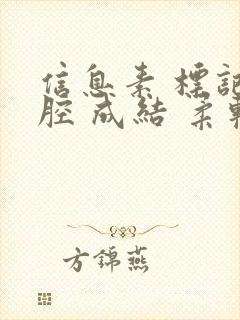 信息素 標記
腔成結 柔
方錦燕